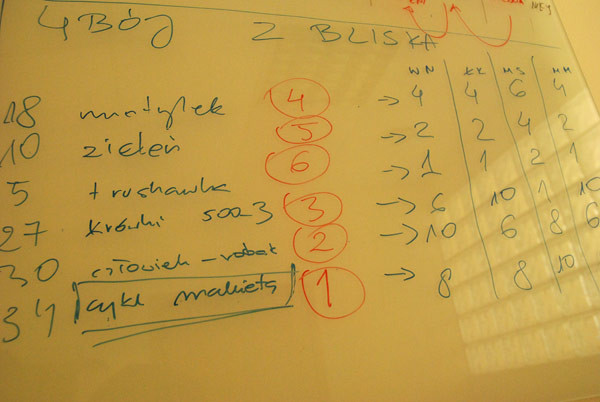 4 BÓJ Z BLISKA
WN KK MS MM
18 motylek 4 → 4 4 6 4
10 zieleń 5 → 2 2 4 2
5 truskawka 6 → 1 1 2 1
27 krówki 3 → 6 10 1 10
30 człowiek-robot 2 → 10 6 8 6
34 cykl makieta 1 → 8 8 10